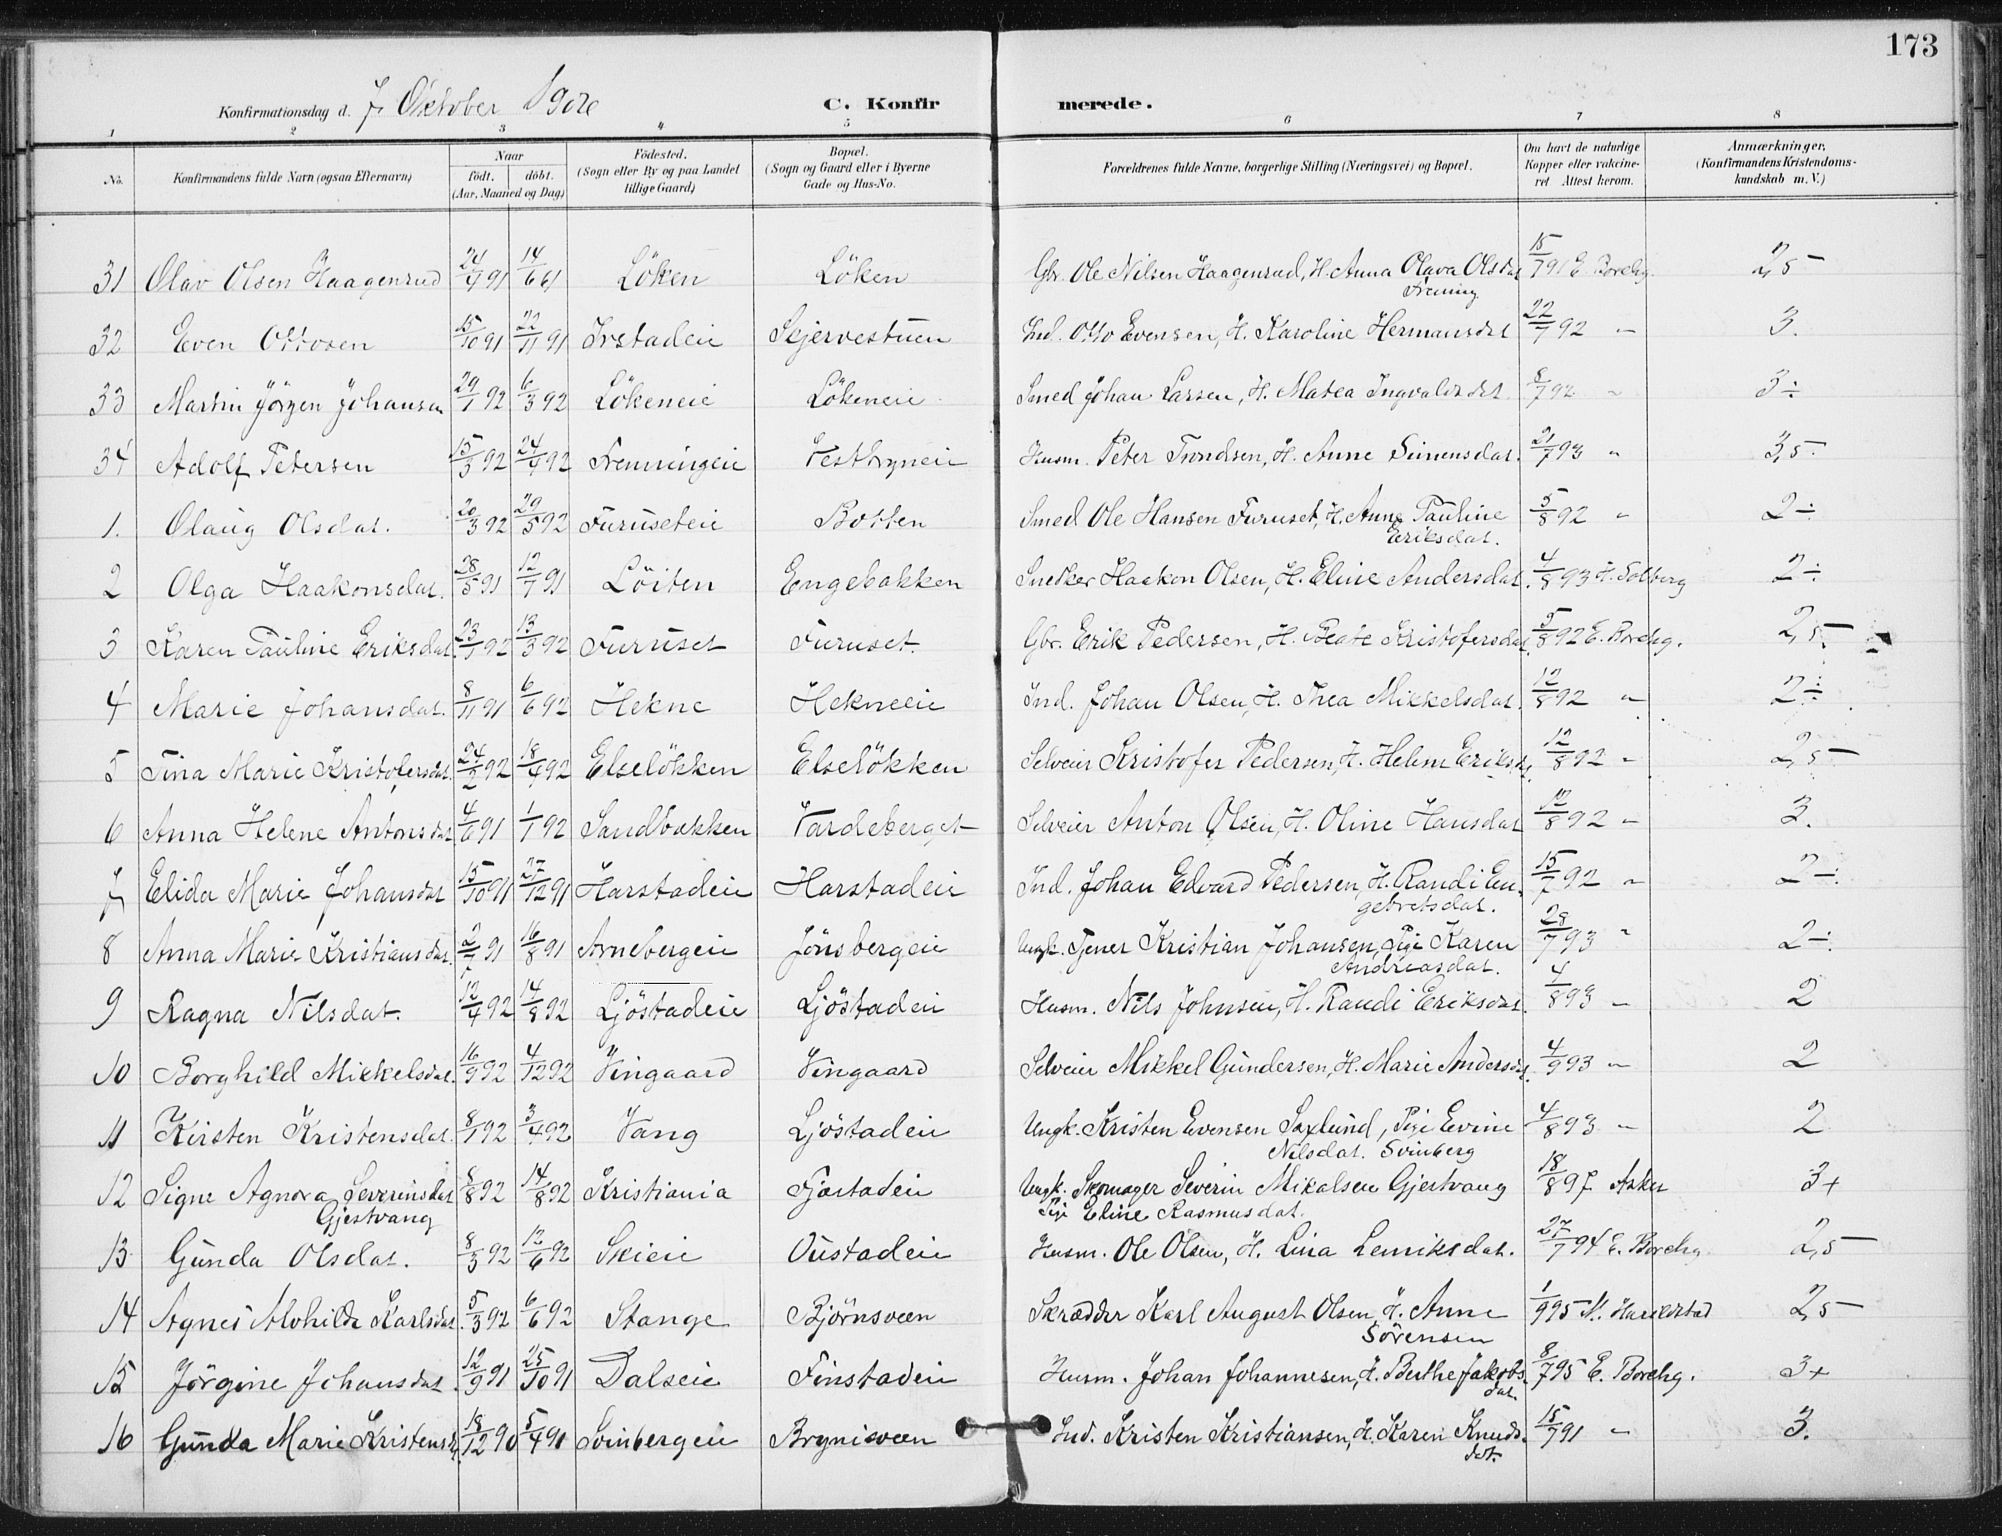 173
Konfirmationsdag d. 7 Oktober 1906 C. Konfirmerede.
1 2 3 4 5 6 7 8
No. Konfirmandens fulde Navn (ogsaa Efternavn) Naar födt. döbt. (Aar, Maaned og Dag) Födested. (Sogn eller By og paa Landet tillige Gaard) Bopæl. (Sogn og Gaard eller i Byerne Gade og Hus-No. Forældrenes fulde Navne, borgerlige Stilling (Næringsvei) og Bopæl. Om havt de naturlige Kopper eller vakcineret Attest herom. Anmærkninger, (Konfirmandens Kristendomskundskab m. V.)
31 Olav Olsen Haagenrud 24/4 91 14/6 91 Löken Löken Gbr. Ole Nilsen Haagenrud, H. Anna Olava Olsdat 15/7 91 E. Borchg. 2,5
Frening
32 Even Ottosen 15/10 91 22/11 91 Irstadeie Skjervestuen Ind. Otto Evensen, H. Karoline Hermansdat 22/7 92 " 3.
33 Martin Jörgen Johansen 29/1 92 6/3 92 Lökeneie Lökeneie Smed Johan Larsen, H. Matea Ingvaldsdat 8/7 92 " 3÷
34 Adolf Petersen 15/3 92 24/4 92 Frenningeie Vestbyneie Husm. Peter Trondsen, H. Anne Simensdat. 21/7 93 " 3,5
1. Olaug Olsdat. 20/3 92 29/5 92 Furuseteie Botten Smed Ole Hansen Furuset, H. Anne Pauline 5/8 92 " 2÷
Eriksdat.
2 Olga Haakonsdat. 28/5 91 12/7 91 Löiten Engebakken Snedker Haakon Olsen, H. Eline Andersdat. 4/8 93 H. Solberg 2÷
3 Karen Pauline Eriksdat. 23/1 92 13/3 92 Furuset Furuset Gbr. Erik Pedersen, H. Beate Kristofersdat. 5/8 92 E. Borchg. 2,5
4 Marie Johansdat. 8/11 91 6/6 92 Hekne Hekneeie Ind. Johan Olsen, H. Thea Mikkelsdat. 12/8 92 " 2÷
5 Tina Marie Kristofersdat. 24/2 92 18/4 92 Elselökken Elselökken Selveier Kristofer Pedersen, H. Helene Eriksd. 12/8 92 " 2,5
6 Anna Helene Antonsdat 4/6 91 1/1 92 Sandbakken Vardeberget Selveier Anton Olsen, H. Oline Hansdat 12/8 92 " 3.
7 Elida Marie Johansdat 15/10 91 27/12 91 Harstadeie Harstadeie Ind. Johan Edvard Pedersen, H. Randi En- 15/7 92 " 2÷
gebretsdat.
8 Anna Marie Kristiansdat. 2/7 91 16/8 91 Arnebergeie Jönsbergeie Ungk. Tjener Kristian Johansen, Pige Karen 28/7 93 " 2÷
Andreasdat.
9 Ragna Nilsdat. 12/4 92 14/8 92 Ljöstadeie Ljöstadeie Husm. Nils Johnsen, H. Randi Eriksdat. 4/8 93 " 2
10 Borghild Mikkelsdat. 16/9 92 4/12 92 Vingaard Vingaard Selveier Mikkel Gundersen, H. Marie Andersd. 4/9 93 " 2
11 Kirsten Kristensdat. 8/1 92 3/4 92 Vang Ljöstadeie Ungk. Kristen Evensen Saxlund, Pige Evine 4/8 93 " 2
Nilsdat. Svinberg
12 Signe Agnora Severinsdat 8/8 92 14/8 92 Kristiania Fjöstadeie Ungk. Skomager Severin Mikalsen Gjestvang 18/8 97 Asker 3+
Gjestvang Pige Eline Rasmusdat.
13 Gunda Olsdat. 8/3 92 12/6 92 Skieie Oustadeie Husm. Ole Olsen, H. Lina Lemiksdat. 27/7 94 E. Borchg 2,5
14 Agnes Alvhilde Karlsdat. 5/3 92 6/6 92 Stange Björnsveen Skrædder Karl August Olsen, H. Anne 1/9 95 2,5
Sörensen
15 Jörgine Johansdat. 12/9 91 25/10 91 Dalseie Finstadeie Husm. Johan Johannesen, H. Berthe Jakobs- 8/7 95 E. Borchg. 3+
dat
16 Gunda Marie Kristensd. 18/12 90 5/4 91 Svinbergeie Brynisveen Ind. Kristen Kristiansen, H. Karen Knuds- 15/7 91 " 3.
dat.